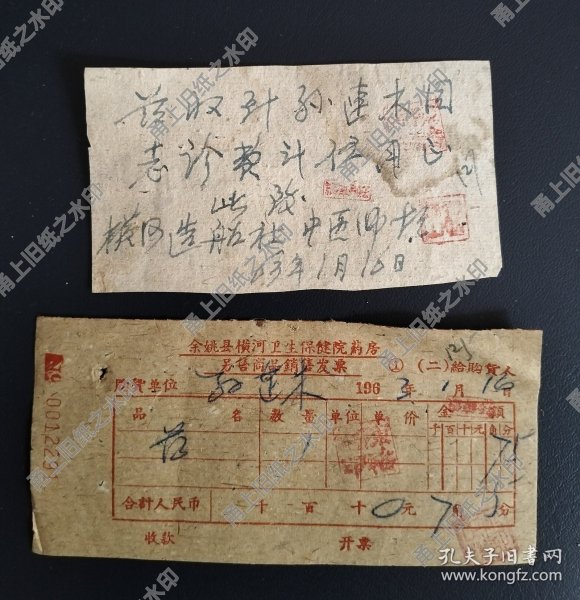 兹收到孙连木同
志诊费计
此致
横河造船社中医师
63年1月10日
余姚县横河卫生保健院药房
另售商品銷售发票
① (二)給購貨人
№ 001223
购貨单位 孙连木 1963年1月10日
品名 数量 单位 单价 金額
千百十元角分
药 1 75
合計人民币 千 百 十 0元 7角 5分
收款 开票
甬上旧纸之水印
孔夫子旧书网
www.kongfz.com